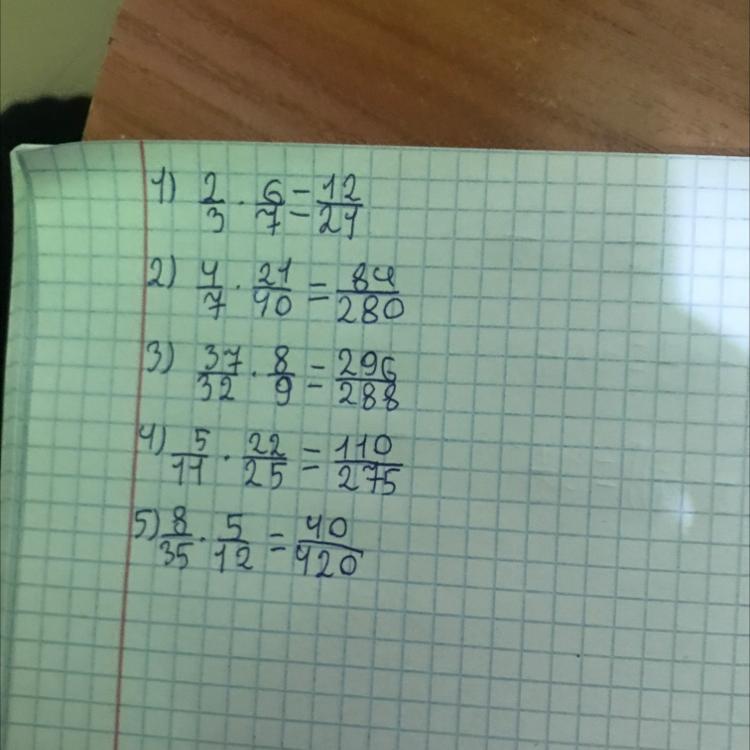 1) 2/3 · 6/7 = 12/21
2) 4/7 · 21/40 = 84/280
3) 37/32 · 8/9 = 296/288
4) 5/11 · 22/25 = 110/275
5) 8/35 · 5/12 = 40/420